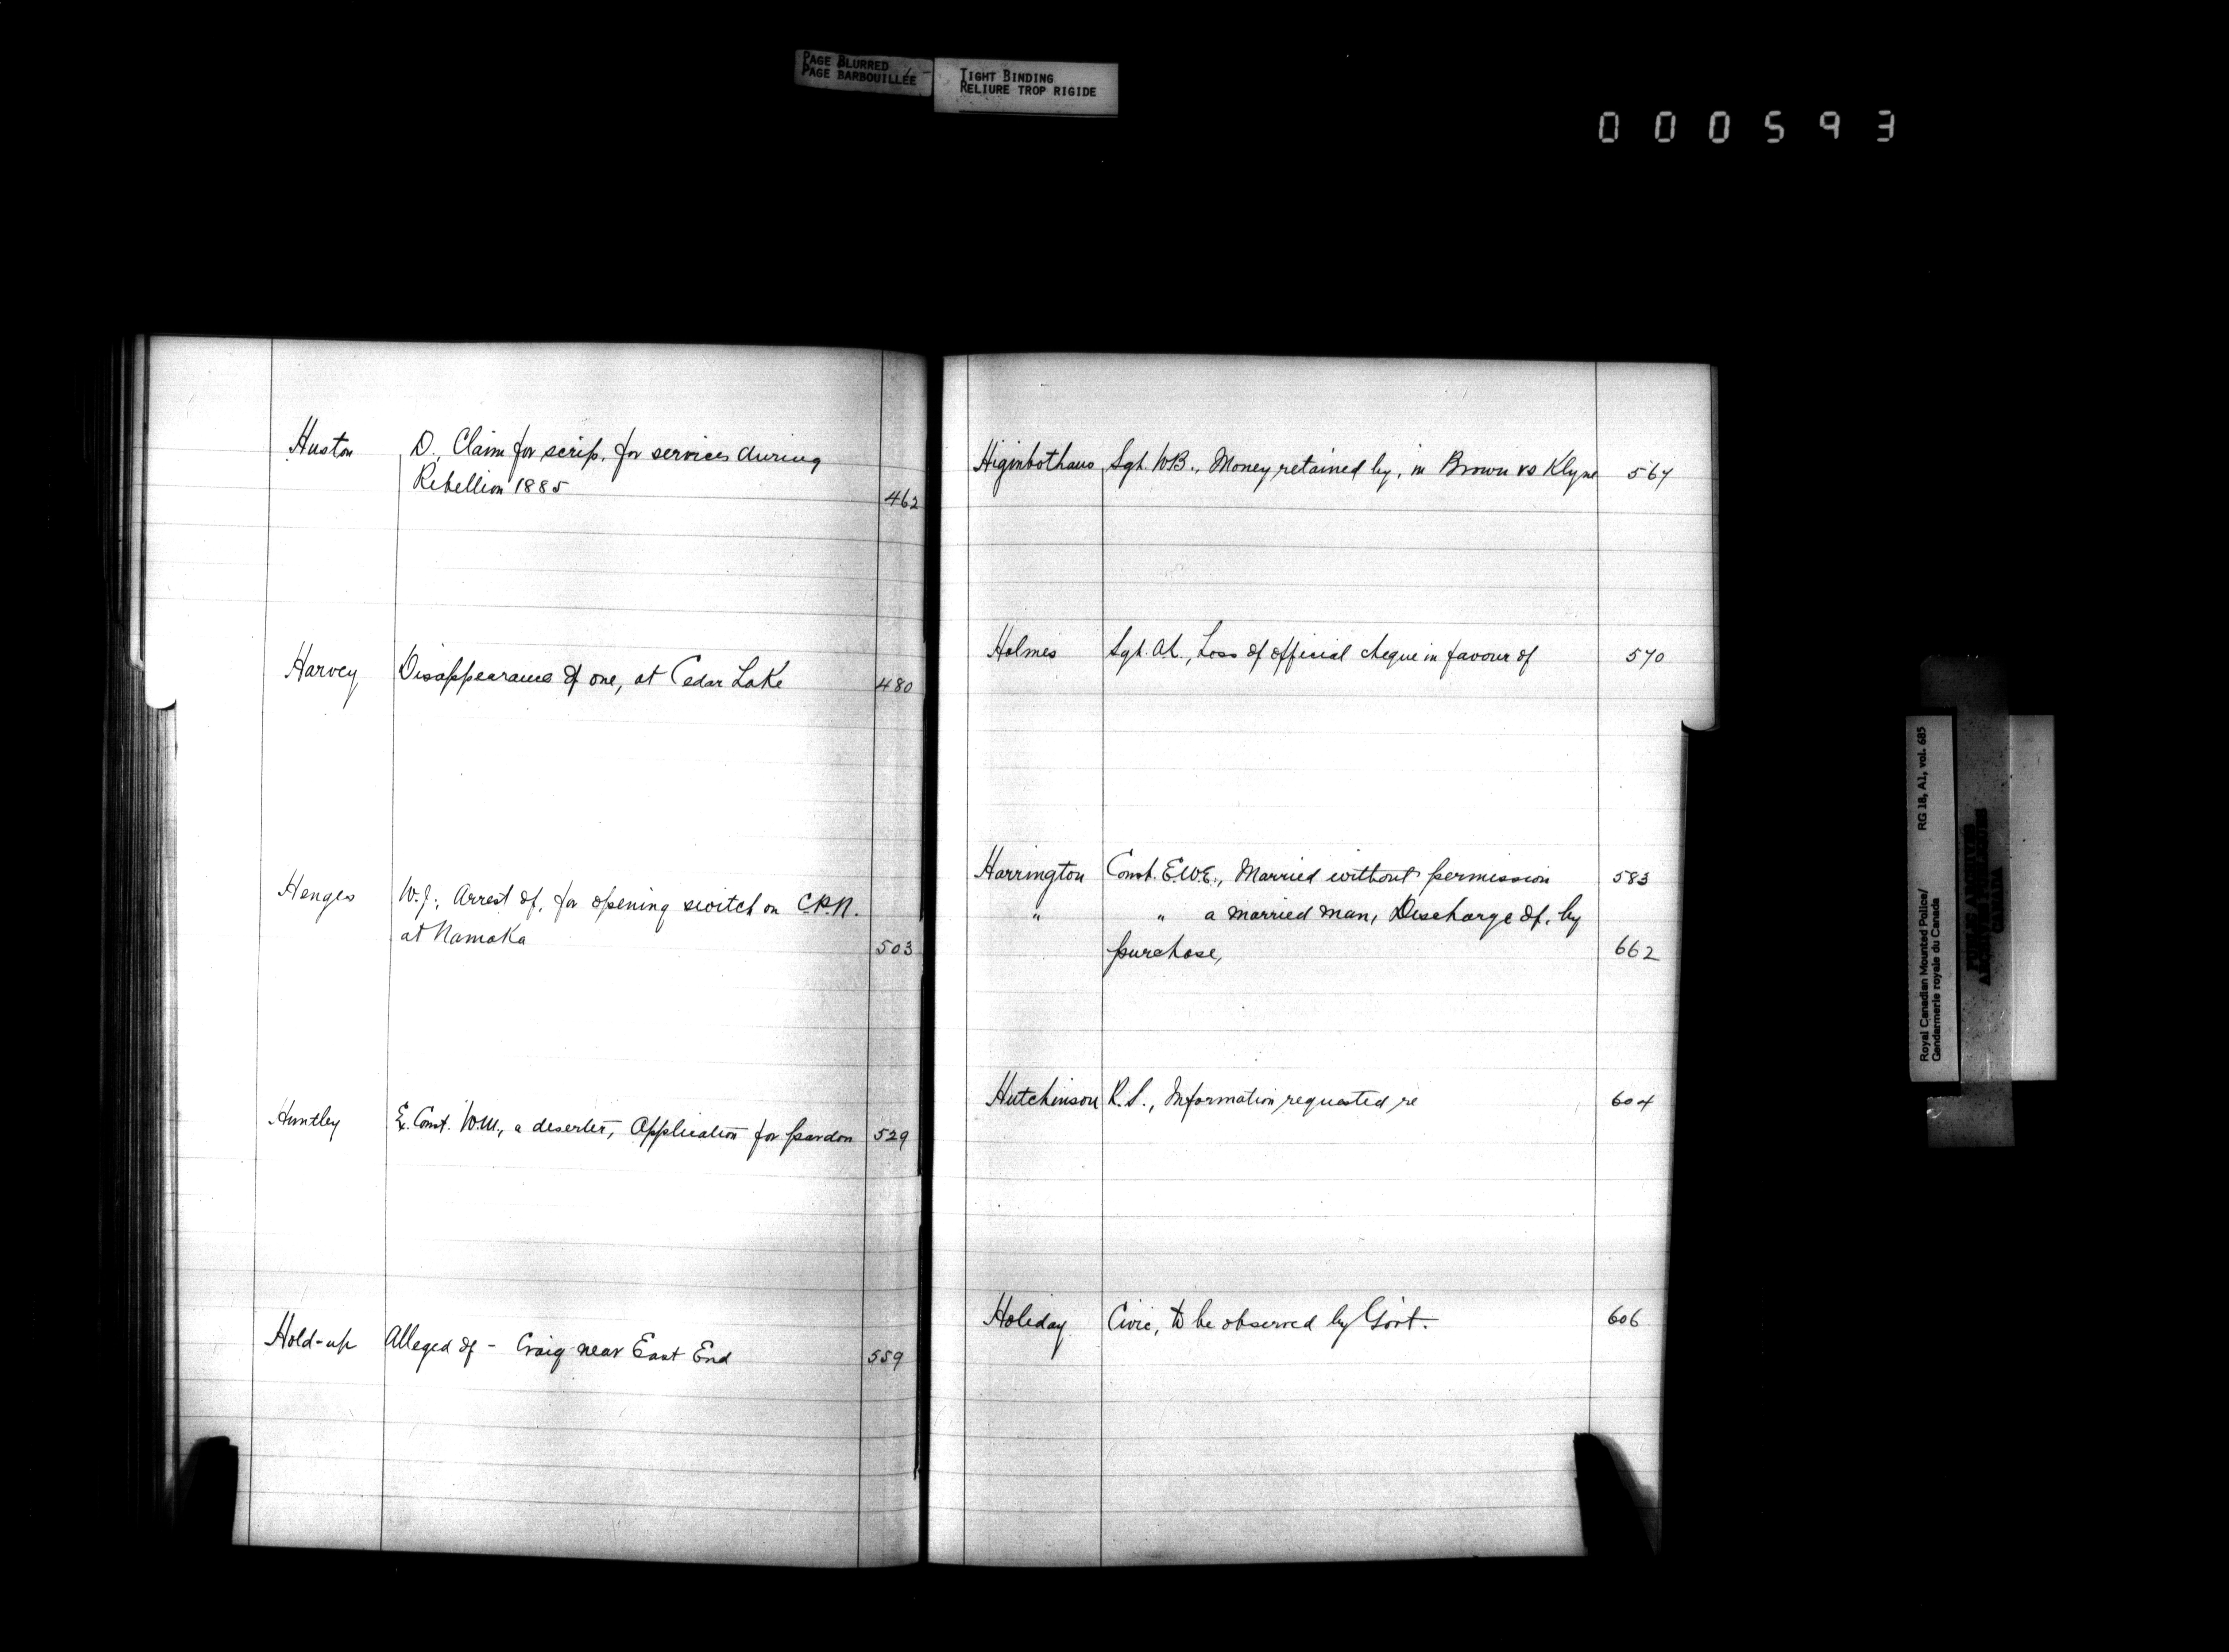 PAGE BLURRED
PAGE BARBOUILLÉE
TIGHT BINDING
RELIURE TROP RIGIDE
000593
Huston D., Claim for scrip, for services during
Rebellion 1885 462
Harvey Disappearance of one, at Cedar Lake 480
Henges W.J., Arrest of, for opening switch on C.P.R.
at Namaka 503
Huntley Ex. Const. Wm., a deserter, Application for pardon 529
Hold-up Alleged of - Craig near East End 559
Higinbotham Sgt. W.B., Money retained by, in Brown vs Klyne 567
Holmes Sgt. , Loss of official cheque in favour of 570
Harrington Const. E.W.E., Married without permission 583
" " a married man, Discharge of, by
purchase, 662
Hutchinson R.S., Information requested re 604
Holiday Civic, to be observed by Govt. 606
Royal Canadian Mounted Police/ RG 18, A1, vol. 685
Gendarmerie royale du Canada
PUBLIC ARCHIVES
ARCHIVES PUBLIQUES
CANADA